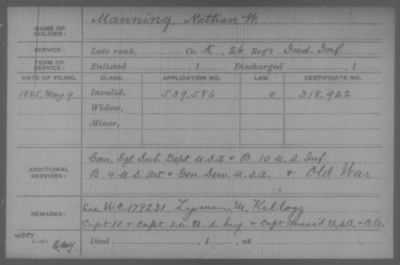 NAME OF SOLDIER: Manning, Nathan W.
SERVICE: Late rank, Co. K, 26 Reg't Ind. Inf.
TERM OF SERVICE: Enlisted , 1 Discharged , 1
DATE OF FILING. CLASS. APPLICATION NO. LAW. CERTIFICATE NO.
1885, May 9 Invalid, 539,586 0 318,922
Widow,
Minor,
ADDITIONAL SERVICES: Com. Sgt. Sub. Dept. U.S.A. & B 10 U.S. Inf.
B. 4 U.S. Art & Gen. Serv. U.S.A. & Old War
REMARKS: See W.C. 179231, Lyman M. Kellogg
Capt 18 & Capt 20 U.S. Inf & Capt U.S.A.
Died , 1 , at